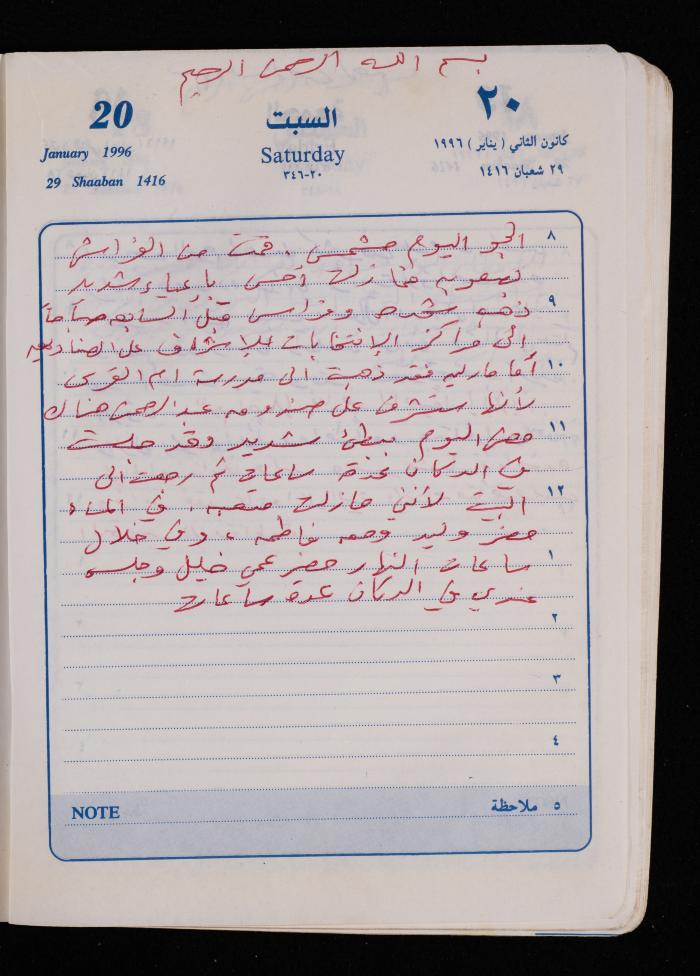 بسم الله الرحمن الرحيم
20 السبت ٢٠
January 1996 Saturday كانون الثاني ( يناير ) ١٩٩٦
29 Shaaban 1416 ٢٠-٣٤٦ ٢٩ شعبان ١٤١٦
٨ الجو اليوم مشمس . قمت من الفراش
بصعوبه فما زلت أحس بإعياء شديد
٩ ذهب وفراس قبل السابعه صباحاً
الى مراكز الإنتخابات للإشراف على الصناديق
١٠ أما فقد ذهبت الى مدرسة ام القرى
لأنها ستشرف على صندوق عبد الرحمن هناك
١١ مضى اليوم ببطئ شديد وقد جلست
في الدكان عدة ساعات ثم رجعت الى
١٢ البيت لأنني مازلت متعبه . في المساء
حضر وليد ومعه فاطمه ، وفي خلال
١ ساعات النهار حضر عمي خليل وجلس
عندي في الدكان عدة ساعات
٢
٣
٤
NOTE ٥ ملاحظة